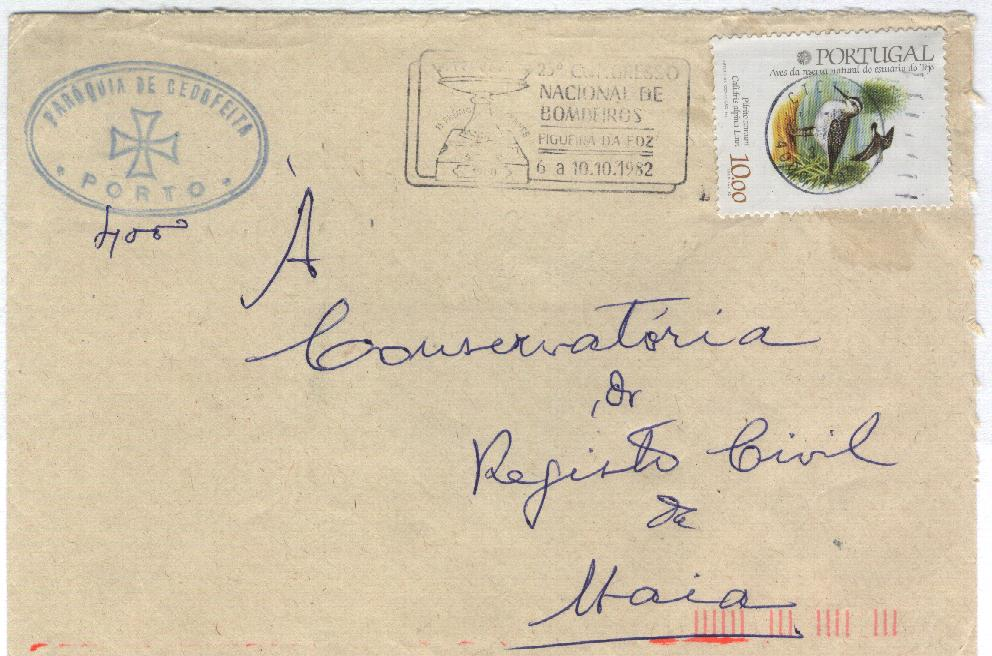 PARÓQUIA DE CEDOFEITA
PORTO
400
25º CONGRESSO
NACIONAL DE
BOMBEIROS
FIGUEIRA DA FOZ
6 a 10.10.1982
PORTUGAL
Aves da reserva natural do estuário do Tejo
Pilrito comum
Calidris alpina L.
10.00
À
Conservatória
do
Registo Civil
da
Maia